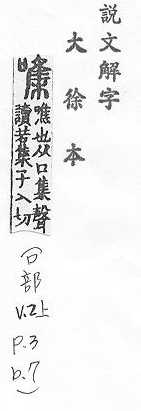 説文解字
大徐本
㗱
噍也从口集聲
讀若集子入切
(口部 V.2上 p.3 b.7)